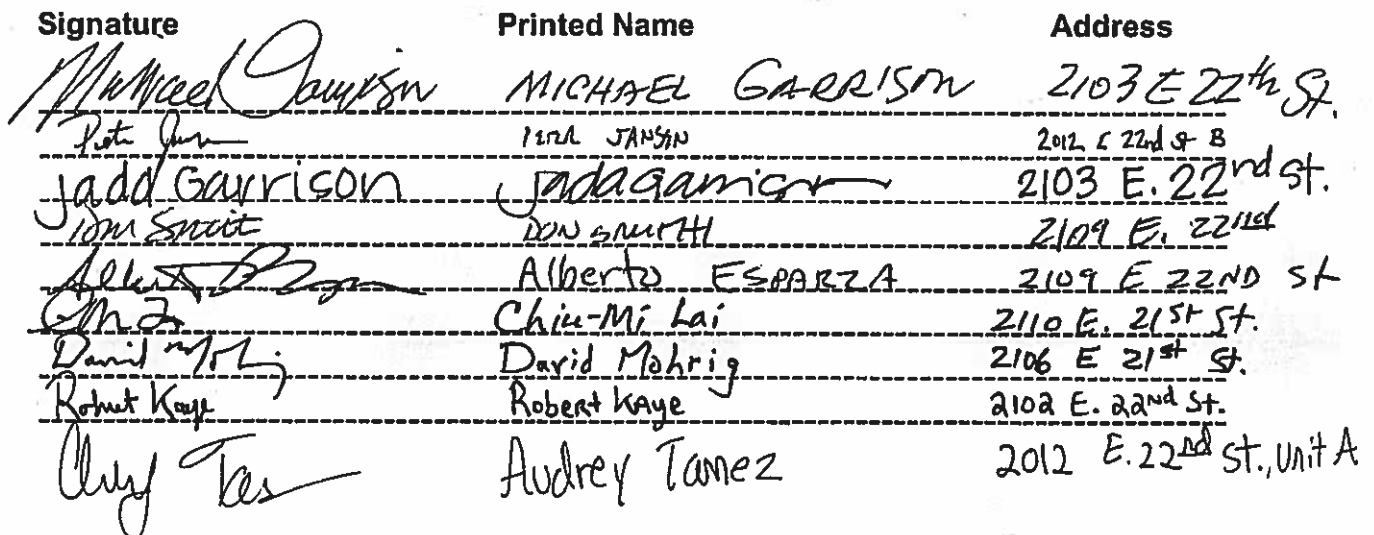 Signature Printed Name Address
Michael Garrison MICHAEL GARRISON 2103 E 22th St.
JANSEN 2012 E 22nd St B
jadd Garrison jada garrison 2103 E. 22nd St.
DON SMITH 2109 E. 22nd
Alberto ESPARZA 2109 E 22ND St
Chiu-Mi Lai 2110 E. 21st St.
David Mohrig David Mohrig 2106 E 21st St.
Robert Kaye Robert Kaye 2102 E. 22nd St.
Audrey Tamez 2012 E. 22nd St., Unit A